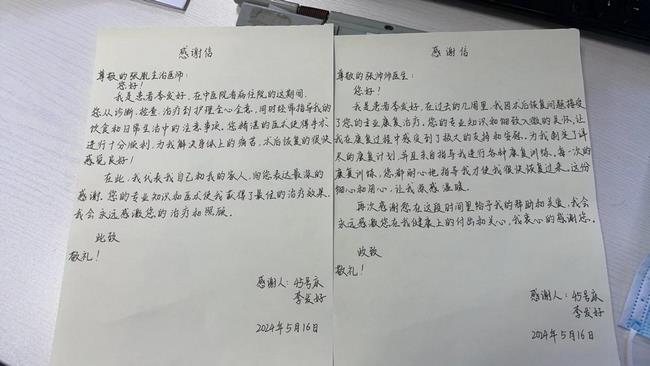 感谢信
尊敬的张胤主治医师:
您好!
我是患者李发好,在中医院看病住院的这期间,
您从诊断,检查,治疗到护理全心全意,同时经常指导我的
饮食和日常生活中的注意事项。您精湛的医术使得手术
进行十分顺利,为我解决身体上的病苦,术后恢复的很快
感觉良好!
在此,我代表我自己和我的家人,向您表达最深的
感谢,您的专业知识和医术使我获得了最佳的治疗效果。
我会永远感激您的治疗和照顾。
此致
敬礼!
感谢人:45号床
李发好
2024年5月16日
感谢信
尊敬的张帅帅医生:
您好!
我是患者李发好,在过去的几周里,我因术后恢复问题接受
了您的专业康复治疗。您的专业知识和细致入微的关怀,让
我在康复过程中感受到了极大的支持和安慰。为我制定了详
尽的康复计划,并且亲自指导我进行各种康复训练。每一次的
康复训练,您都耐心地指导我才使我很快恢复过来。这份
细心和用心,让我深感温暖。
再次感谢您在这段时间里给予我的帮助和关爱,我会
永远感激您在我健康上的付出和关心,我衷心的感谢您。
此致
敬礼!
感谢人:45号床
李发好
2024年5月16日